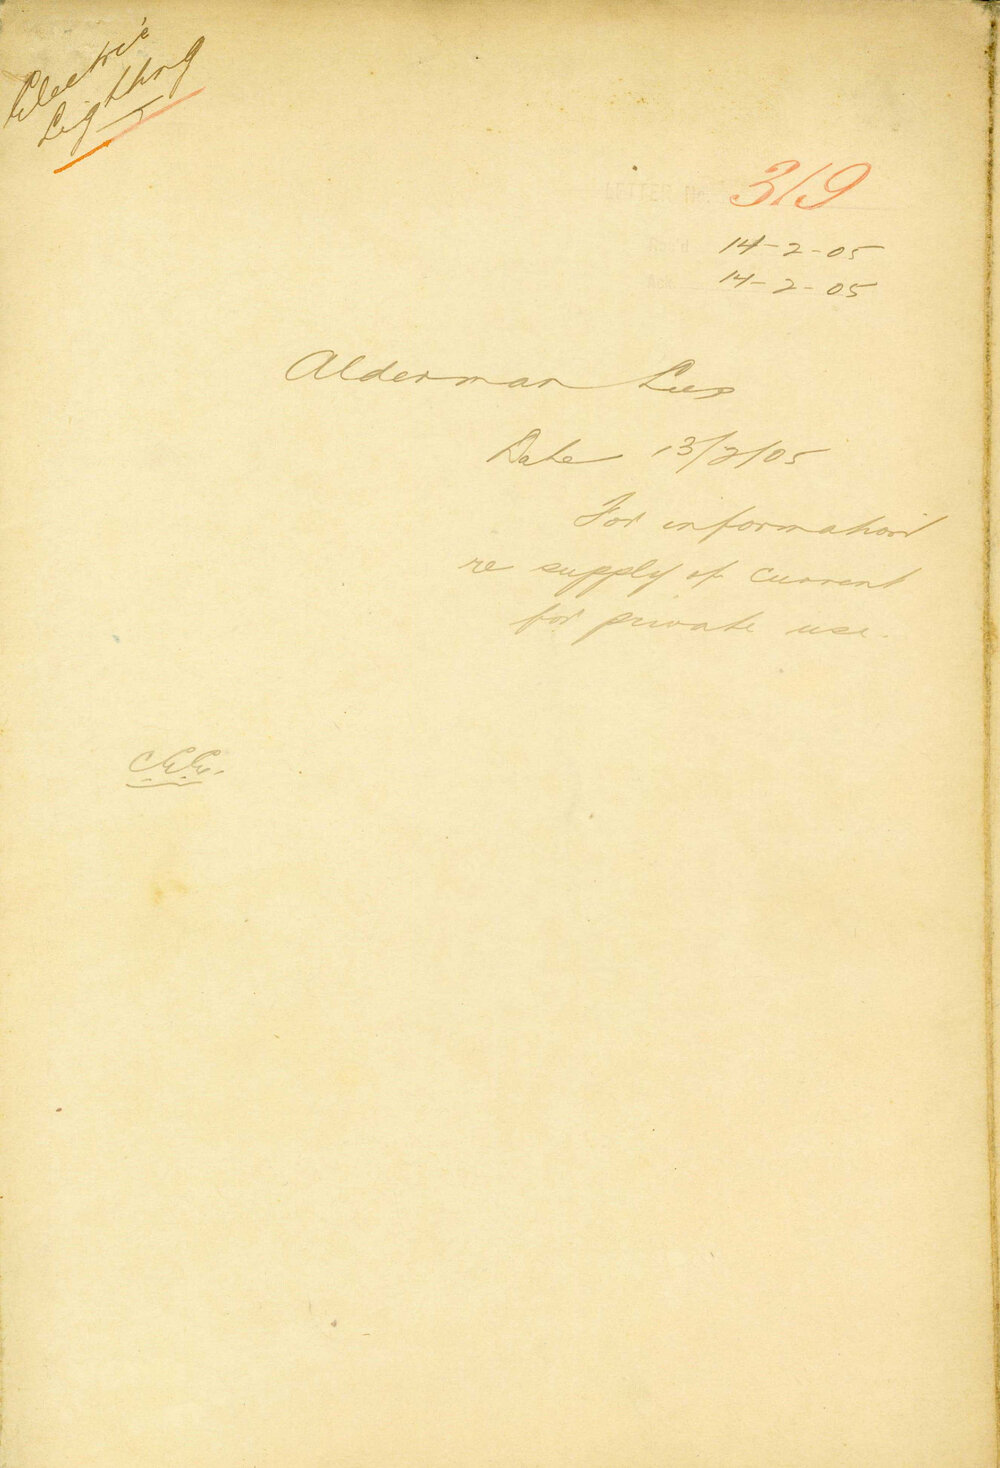 Electric
Lighting
LETTER No. 319
Rec'd 14-2-05
Ack 14-2-05
Alderman Lees
Date 13/2/05
For information
re supply of current
for private use.